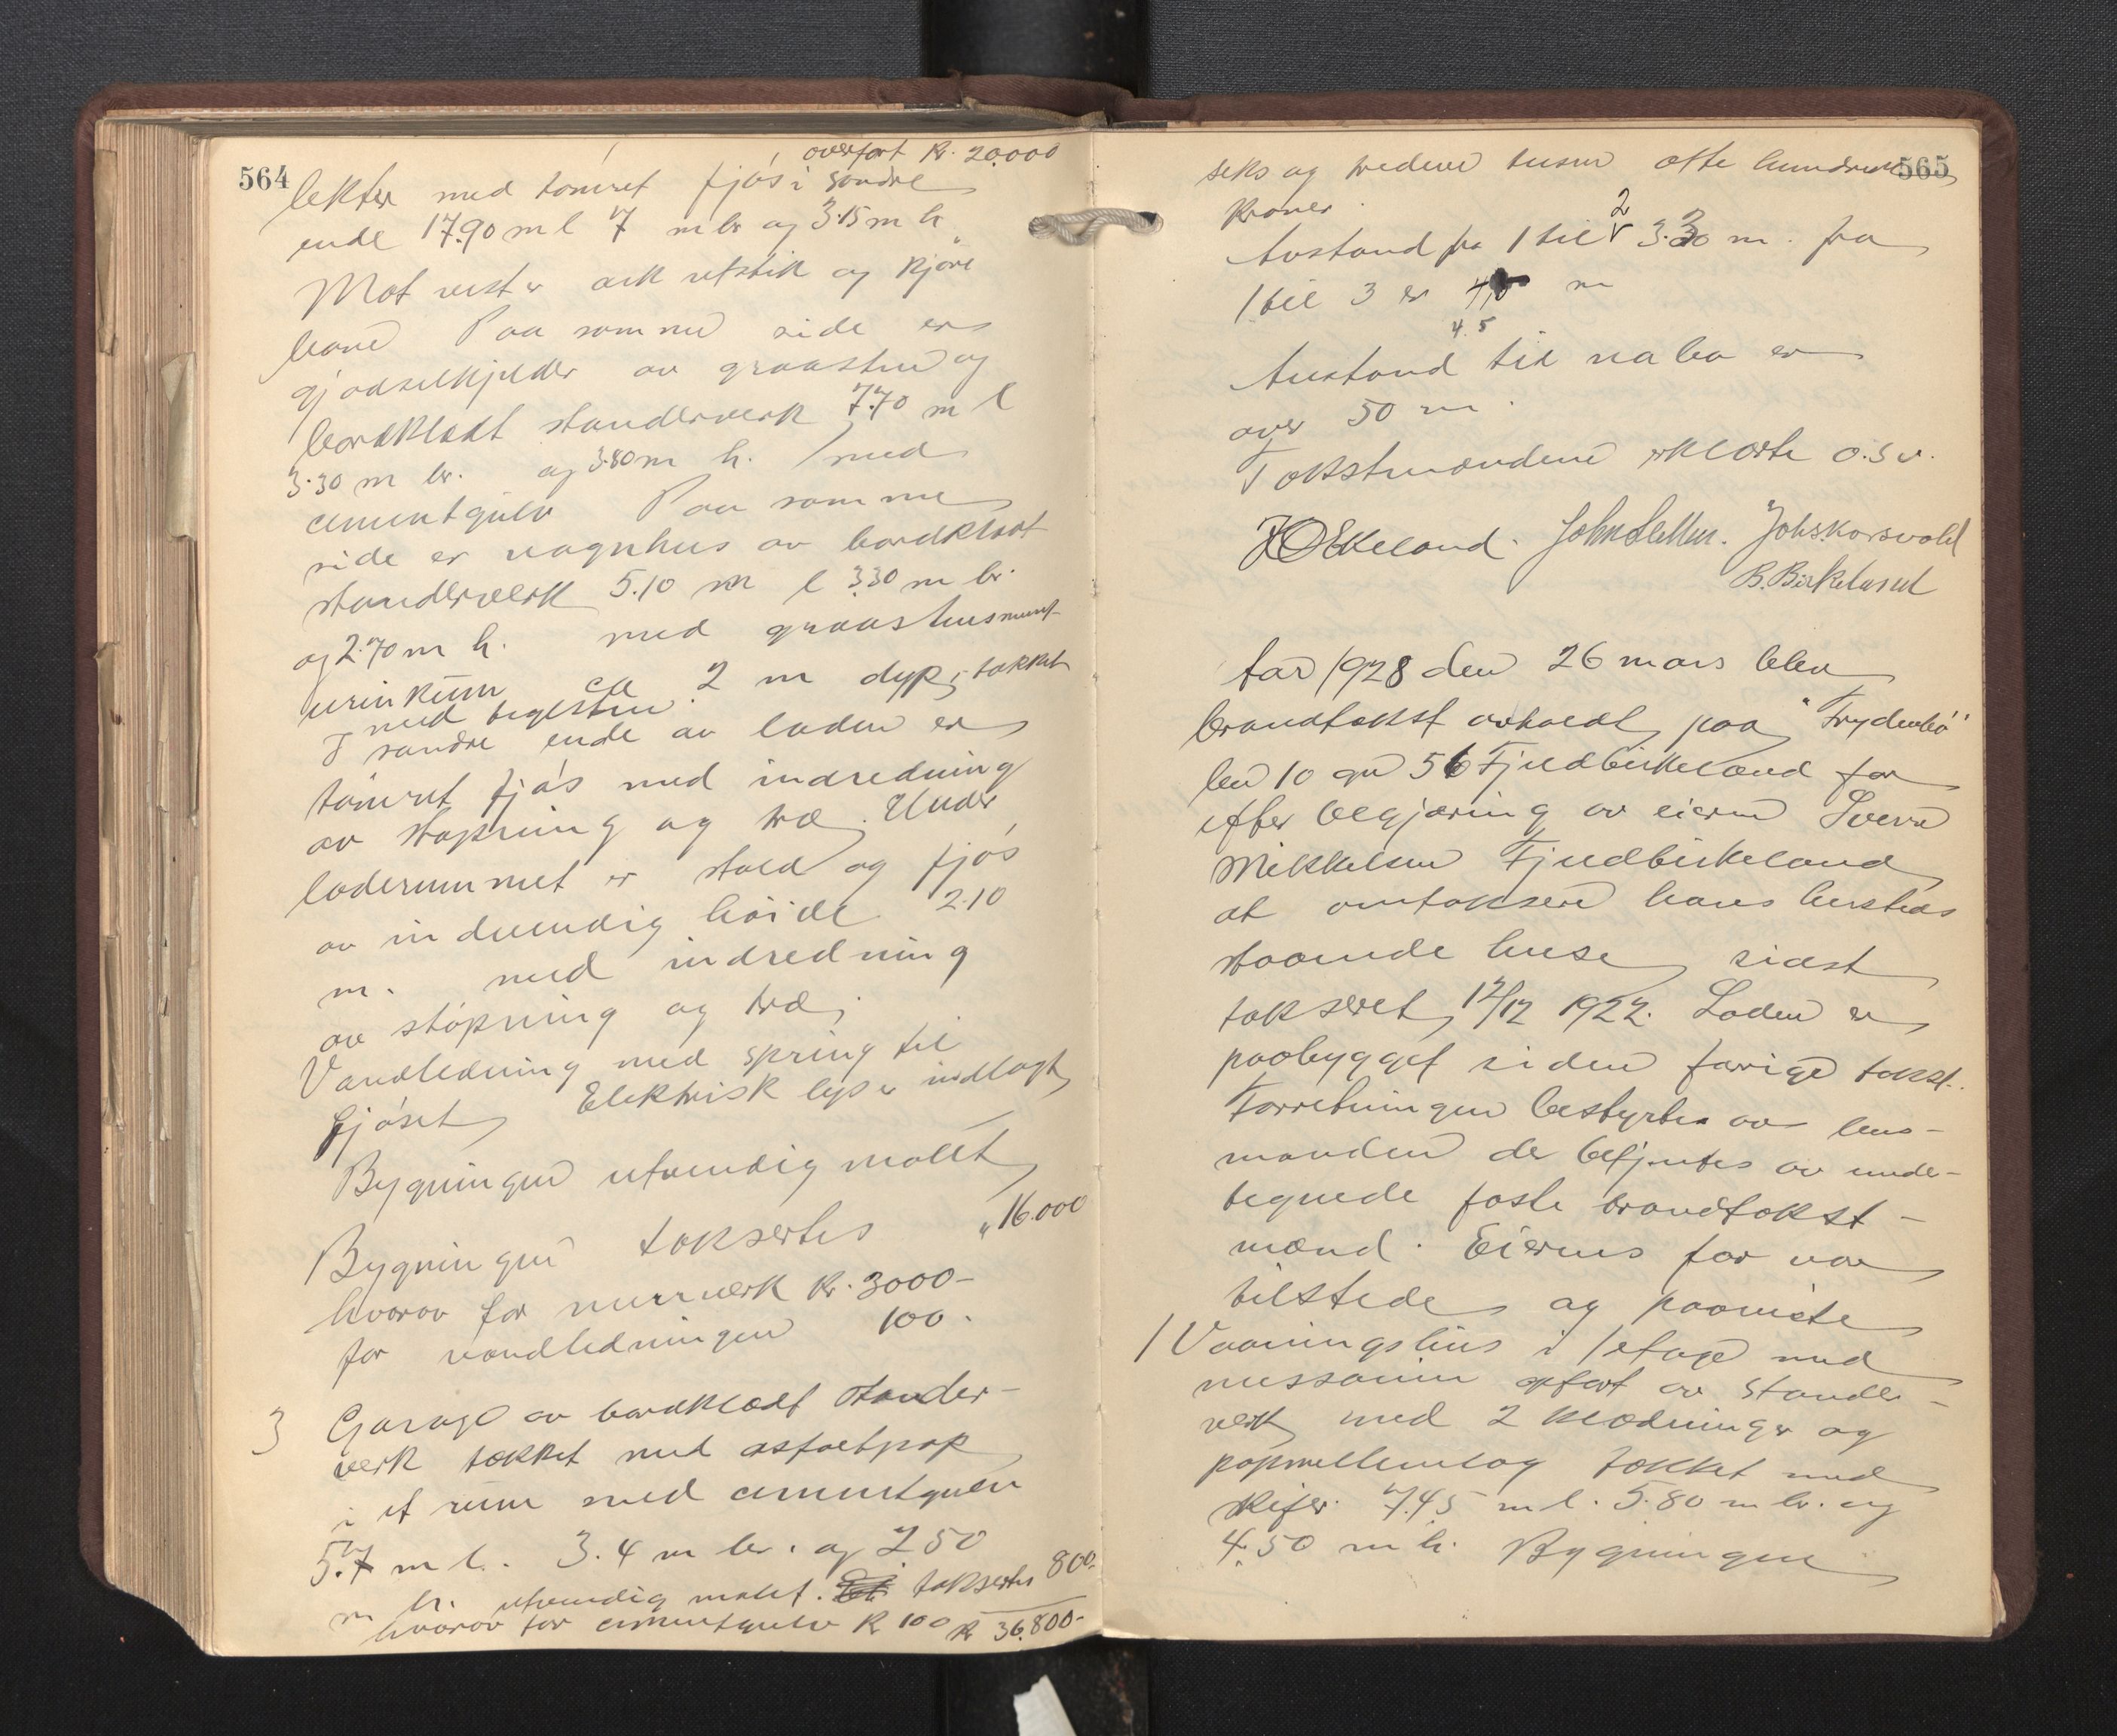 564
overført Kr. 20.000
lekter med tømret fjøs i søndre
ende 17.90 m l 7 m br og 3.15 m h.
Mot vest er ark utstik og kjøre
bane Paa samme side er
gjødselkjelder av graasten og
bordklædt standerverk 7.70 m l
3.30 m br. og 3.80 m h. med
cementgulv Paa samme
side er vognhus av bordklædt
standerverk 5.10 m l 3.30 m br.
og 2.70 m h. med graastensmurt
urinkum ca 2 m dyp, tækket
med teglsten.
I søndre ende av laden er
tømret fjøs med indredning
av støpning og træ. Under
laderummet er stald og fjøs
av indvendig høide 2.10
m. med indredning
av støpning og træ,
Vandledning med spring til
fjøset, Elektrisk lys er indlagt
Bygningen utvendig malet
Bygningen taksertes " 16.000
hvorav for murverk kr. 3000-
for vandledningen 100.
3 Garage av bordklædt stander-
verk tækket med asfaltpap
i et rum med cementgulv
5.7 m l. 3.4 m br. og 2 50
m h. utvendig malet. taksertes 800-
hvorav for cementgulv Kr 100 Kr 36.800-
565
seks og tredeve tusen otte hundrede
Kroner.
Avstand fra 1 til 2 3.30 m. fra
1 til 3 er m
4.5
Avstand til nabo er
over 50 m.
Takstmændene erklærte o.s.v.
Ekeland. John Sletten. Johs. Korsvold
B. Birkeland
Aar 1928 den 26 mars blev
brandtakst avholdt paa "Frydenbø"
bno 10 gno 56 Fjeldbirkeland for
efter begjæring av eieren Sverre
Mikkelsen Fjeldbirkeland
at omtaksere hans hersteds
staaende huse, sidst
takseret 12/12 1922. Laden er
paabygget siden forrige takst.
Forretningen bestyrtes av lens-
manden de betjentes av under-
tegnede faste brandtakst-
mænd. Eierens far var
tilstede og paaviste
1 Vaaningshus i 1 etage med
messanin opført av stander-
verk med 2 klædninger og
papmellemlag tækket med
skifer. 7.45 m l. 5.80 m br. og
4.50 m h. Bygningen